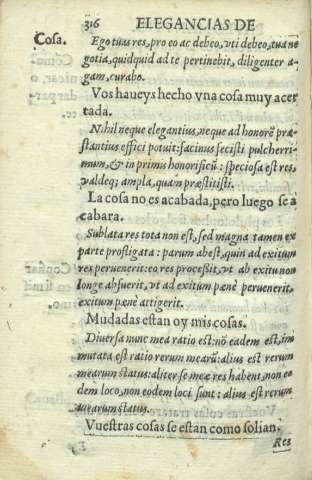 316 ELEGANCIAS DE
Cosa. Ego tuas res, pro eo ac debeo, vti debeo, tua ne
gotia, quidquid ad te pertinebit, diligenter a
gam, curabo.
Vos haueys hecho vna cosa muy acer
tada.
Nihil neque elegantius, neque ad honorẽ præ
stantius effici potuit: facinus fecisti pulcherri
mum, & in primis honorificũ: speciosa est res,
valdeq; ampla, quam præstitisti.
La cosa no es acabada, pero luego se a
cabara.
Sublata res tota non est, sed magna tamen ex
parte profligata: parum abest, quin ad exitum
res peruenerit: eo res processit, vt ab exitu non
longe absuerit, vt ad exitum pæne peruenerit,
exitum pænè attigerit.
Mudadas estan oy mis cosas.
Diuersa nunc mea ratio est: nõ eadem est, im
mutata est ratio rerum mearũ: alius est rerum
mearum status: aliter se meæ res habent, non eo
dem loco, non eodem loci sunt: alius est rerum
mearum status.
Vuestras cosas se estan como solian.
Res